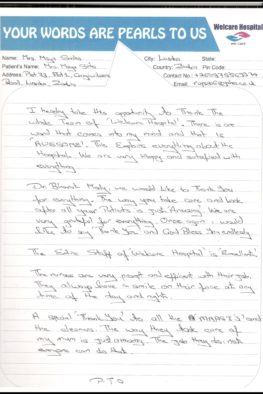 YOUR WORDS ARE PEARLS TO US
Welcare Hospital
WE CARE
Name: Mrs. Maya
City: Lusaka State:
Patient's Name: Mrs. Maya
Country: Zambia Pin Code:
Address: Plot
Contact No:
Road, Lusaka Zambia
Email:
I hereby take this opportunity to Thank The
whole Team of 'Welcare Hospital'. There is one
word that comes into my mind and that is
AWESOME!. This Explains everything about the
Hospital. We are very Happy and satisfied with
everything
Dr Bharat Mody, we would like to Thank You
for everything. The way you take care and look
after all your Patients is just Amazing. We are
very grateful for everything. Once again I would
like to say Thank You and God Bless
The Entire Staff of 'Welcare Hospital' is
The nurses are very prompt and efficient with their job.
They always have a smile on their face at any
time of the day and night.
A special 'Thank You' to all the
and
the cleaners. The way they take care of
my mum is just amazing. The job they do not
everyone can do that.
P.T.O